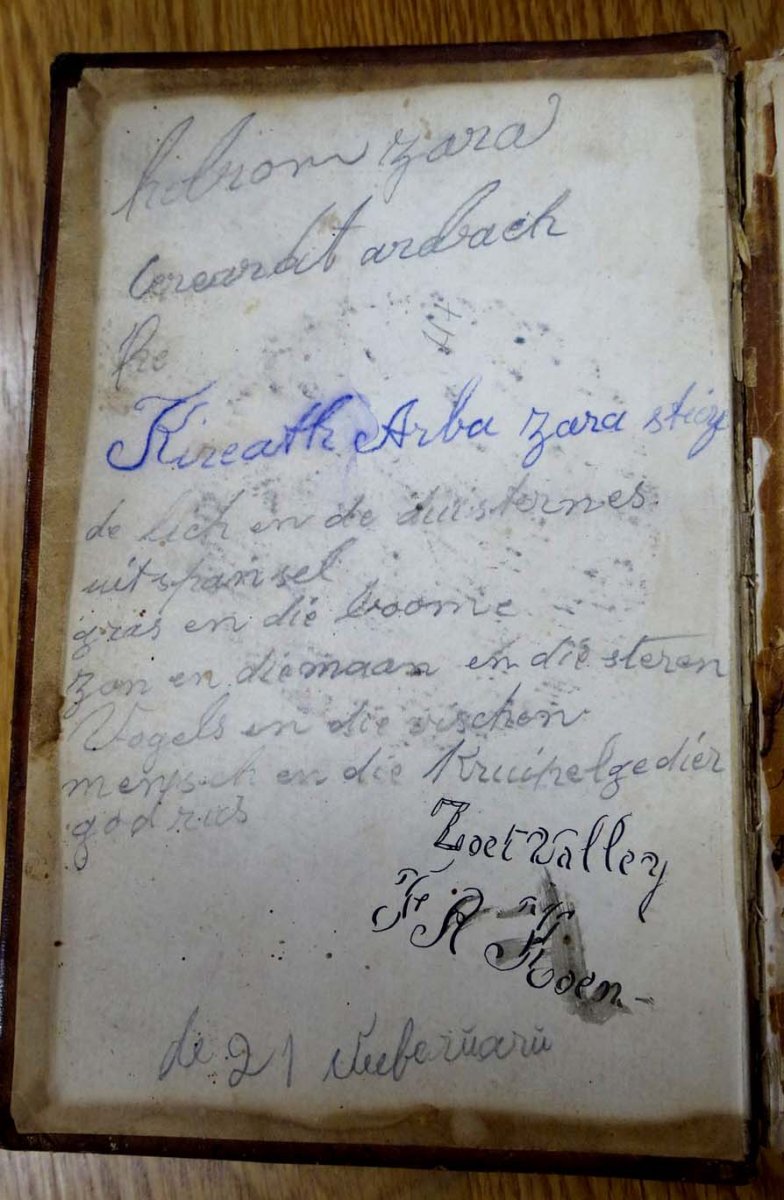 hebron zara
arbach
Kireath Arba zara
de lich en de duisternes
uitspansel
gras en die boome
zon en die maan en die steren
Vogels en die vischen
mensch en die Kruipelgedier
god rus
Zoet Valley
Koen
de 21